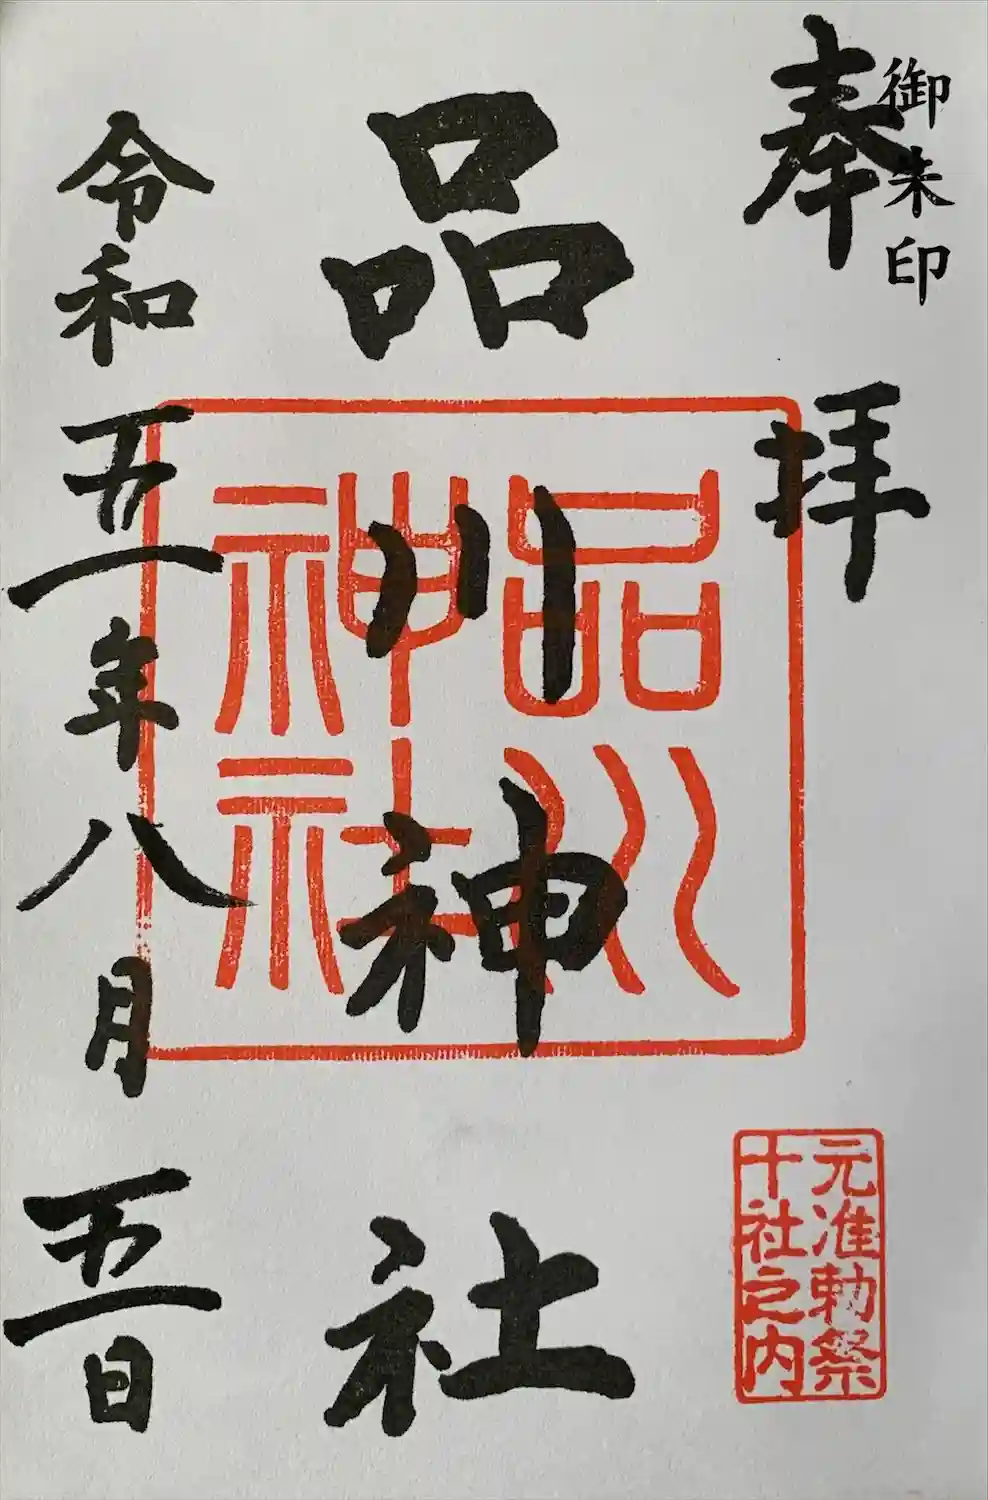 御朱印
奉拝
品川神社
令和五年八月五日
品川
神社
元准勅祭
十社之内